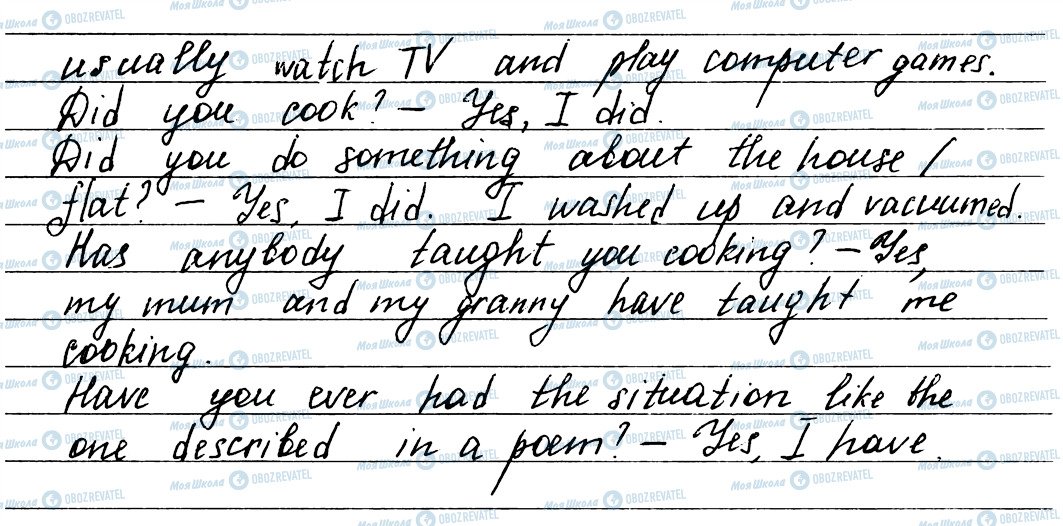 usually watch TV and play computer games.
Did you cook? – Yes, I did.
Did you do something about the house /
flat? – Yes, I did. I washed up and vacuumed.
Has anybody taught you cooking? – Yes,
my mum and my granny have taught me
cooking.
Have you ever had the situation like the
one described in a poem? – Yes, I have.